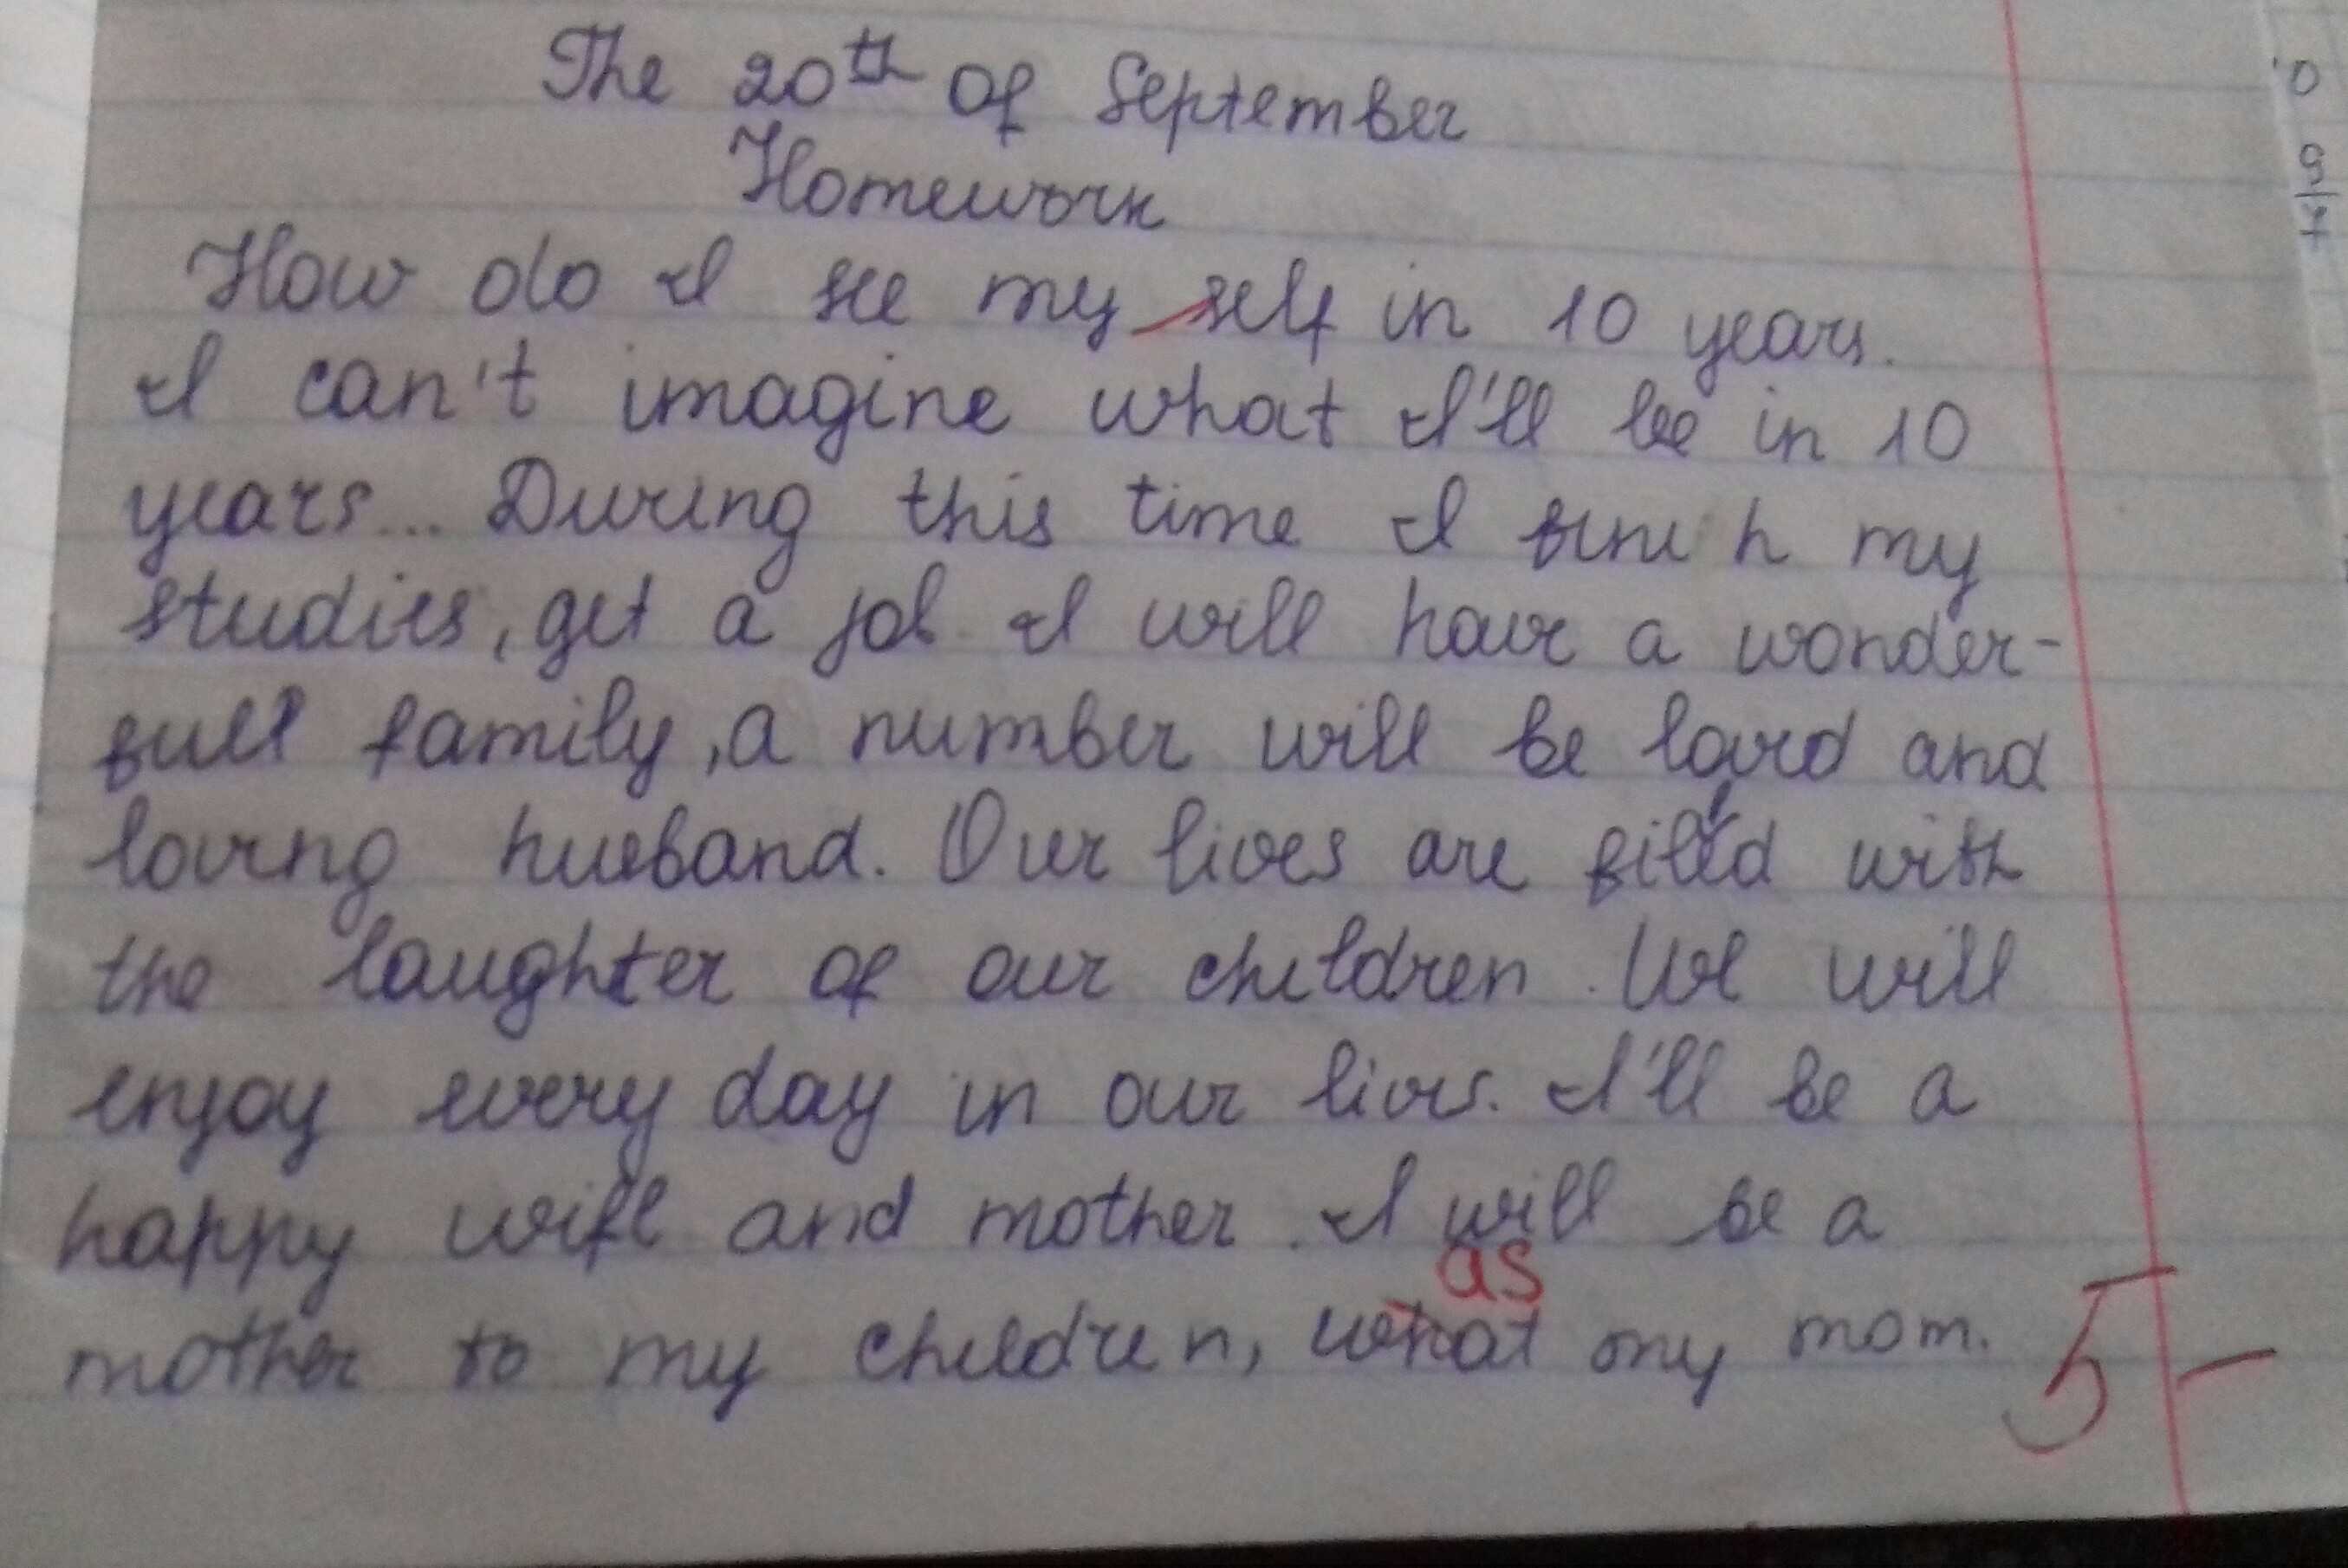 The 20th of September
Homework
How do I see my self in 10 years.
I can't imagine what I'll be in 10
years... During this time I fini h my
studies, get a job. I will have a wonder-
full family, a number will be loved and
loving husband. Our lives are filled with
the laughter of our children. We will
enjoy every day in our lives. I'll be a
happy wife and mother. I will be a
as
mother to my children, what my mom.
5-
0
9
7